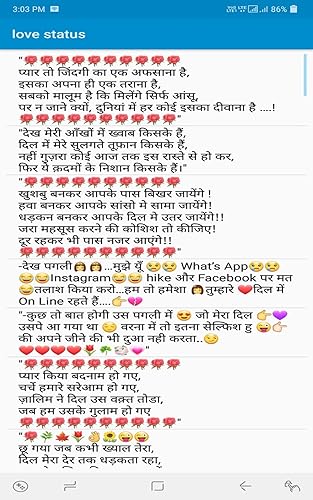 3:03 PM
86%
love status
"🌹🌹🌹🌹🌹🌹🌹🌹🌹🌹
प्यार तो जिंदगी का एक अफसाना है,
इसका अपना ही एक तराना है,
सबको मालूम है कि मिलेंगे सिर्फ आंसू,
पर न जाने क्यों, दुनियां में हर कोई इसका दीवाना है ....!
🌹🌹🌹🌹🌹🌹🌹🌹🌹🌹"
"देख मेरी आँखों में ख्वाब किसके हैं,
दिल में मेरे सुलगते तूफ़ान किसके हैं,
नहीं गुज़रा कोई आज तक इस रास्ते से हो कर,
फिर ये क़दमों के निशान किसके हैं।"
"🌹🌹🌹🌹🌹🌹🌹🌹🌹🌹
खुशबु बनकर आपके पास बिखर जायेंगे !
हवा बनकर आपके सांसो मे सामा जायेंगे!
धड़कन बनकर आपके दिल मे उतर जायेंगे!!
जरा महसूस करने की कोशिश तो कीजिए!
दूर रहकर भी पास नजर आएंगे!!
🌹🌹🌹🌹🌹🌹🌹🌹🌹🌹"
-देख पगली👩👩...मुझे यूँ 😒😒 What’s App😒😒
😂😂Instagram😂😂 hike और Facebook पर मत
😂तलाश किया करो...हम तो हमेशा 👩तुम्हारे ❤️दिल में
On Line रहते हैं....👉💔
"-कुछ तो बात होगी उस पगली में 😍 जो मेरा दिल 👉💔
उसपे आ गया था 😏 वरना में तो इतना सेल्फिश हु 😜👉
की अपने जीने की भी दुआ नही करता..😏
❤️❤️❤️❤️🌷🌴🐇💗"
"🌹🌹🌹🌹🌹🌹🌹🌹🌹🌹
प्यार किया बदनाम हो गए,
चर्चे हमारे सरेआम हो गए,
ज़ालिम ने दिल उस वक़्त तोडा,
जब हम उसके गुलाम हो गए
🌹🌹🌹🌹🌹🌹🌹🌹🌹🌹"
"🌹🌿🍁🌷✌️👌🌼😜😀
छू गया जब कभी ख्याल तेरा,
दिल मेरा देर तक धड़कता रहा,